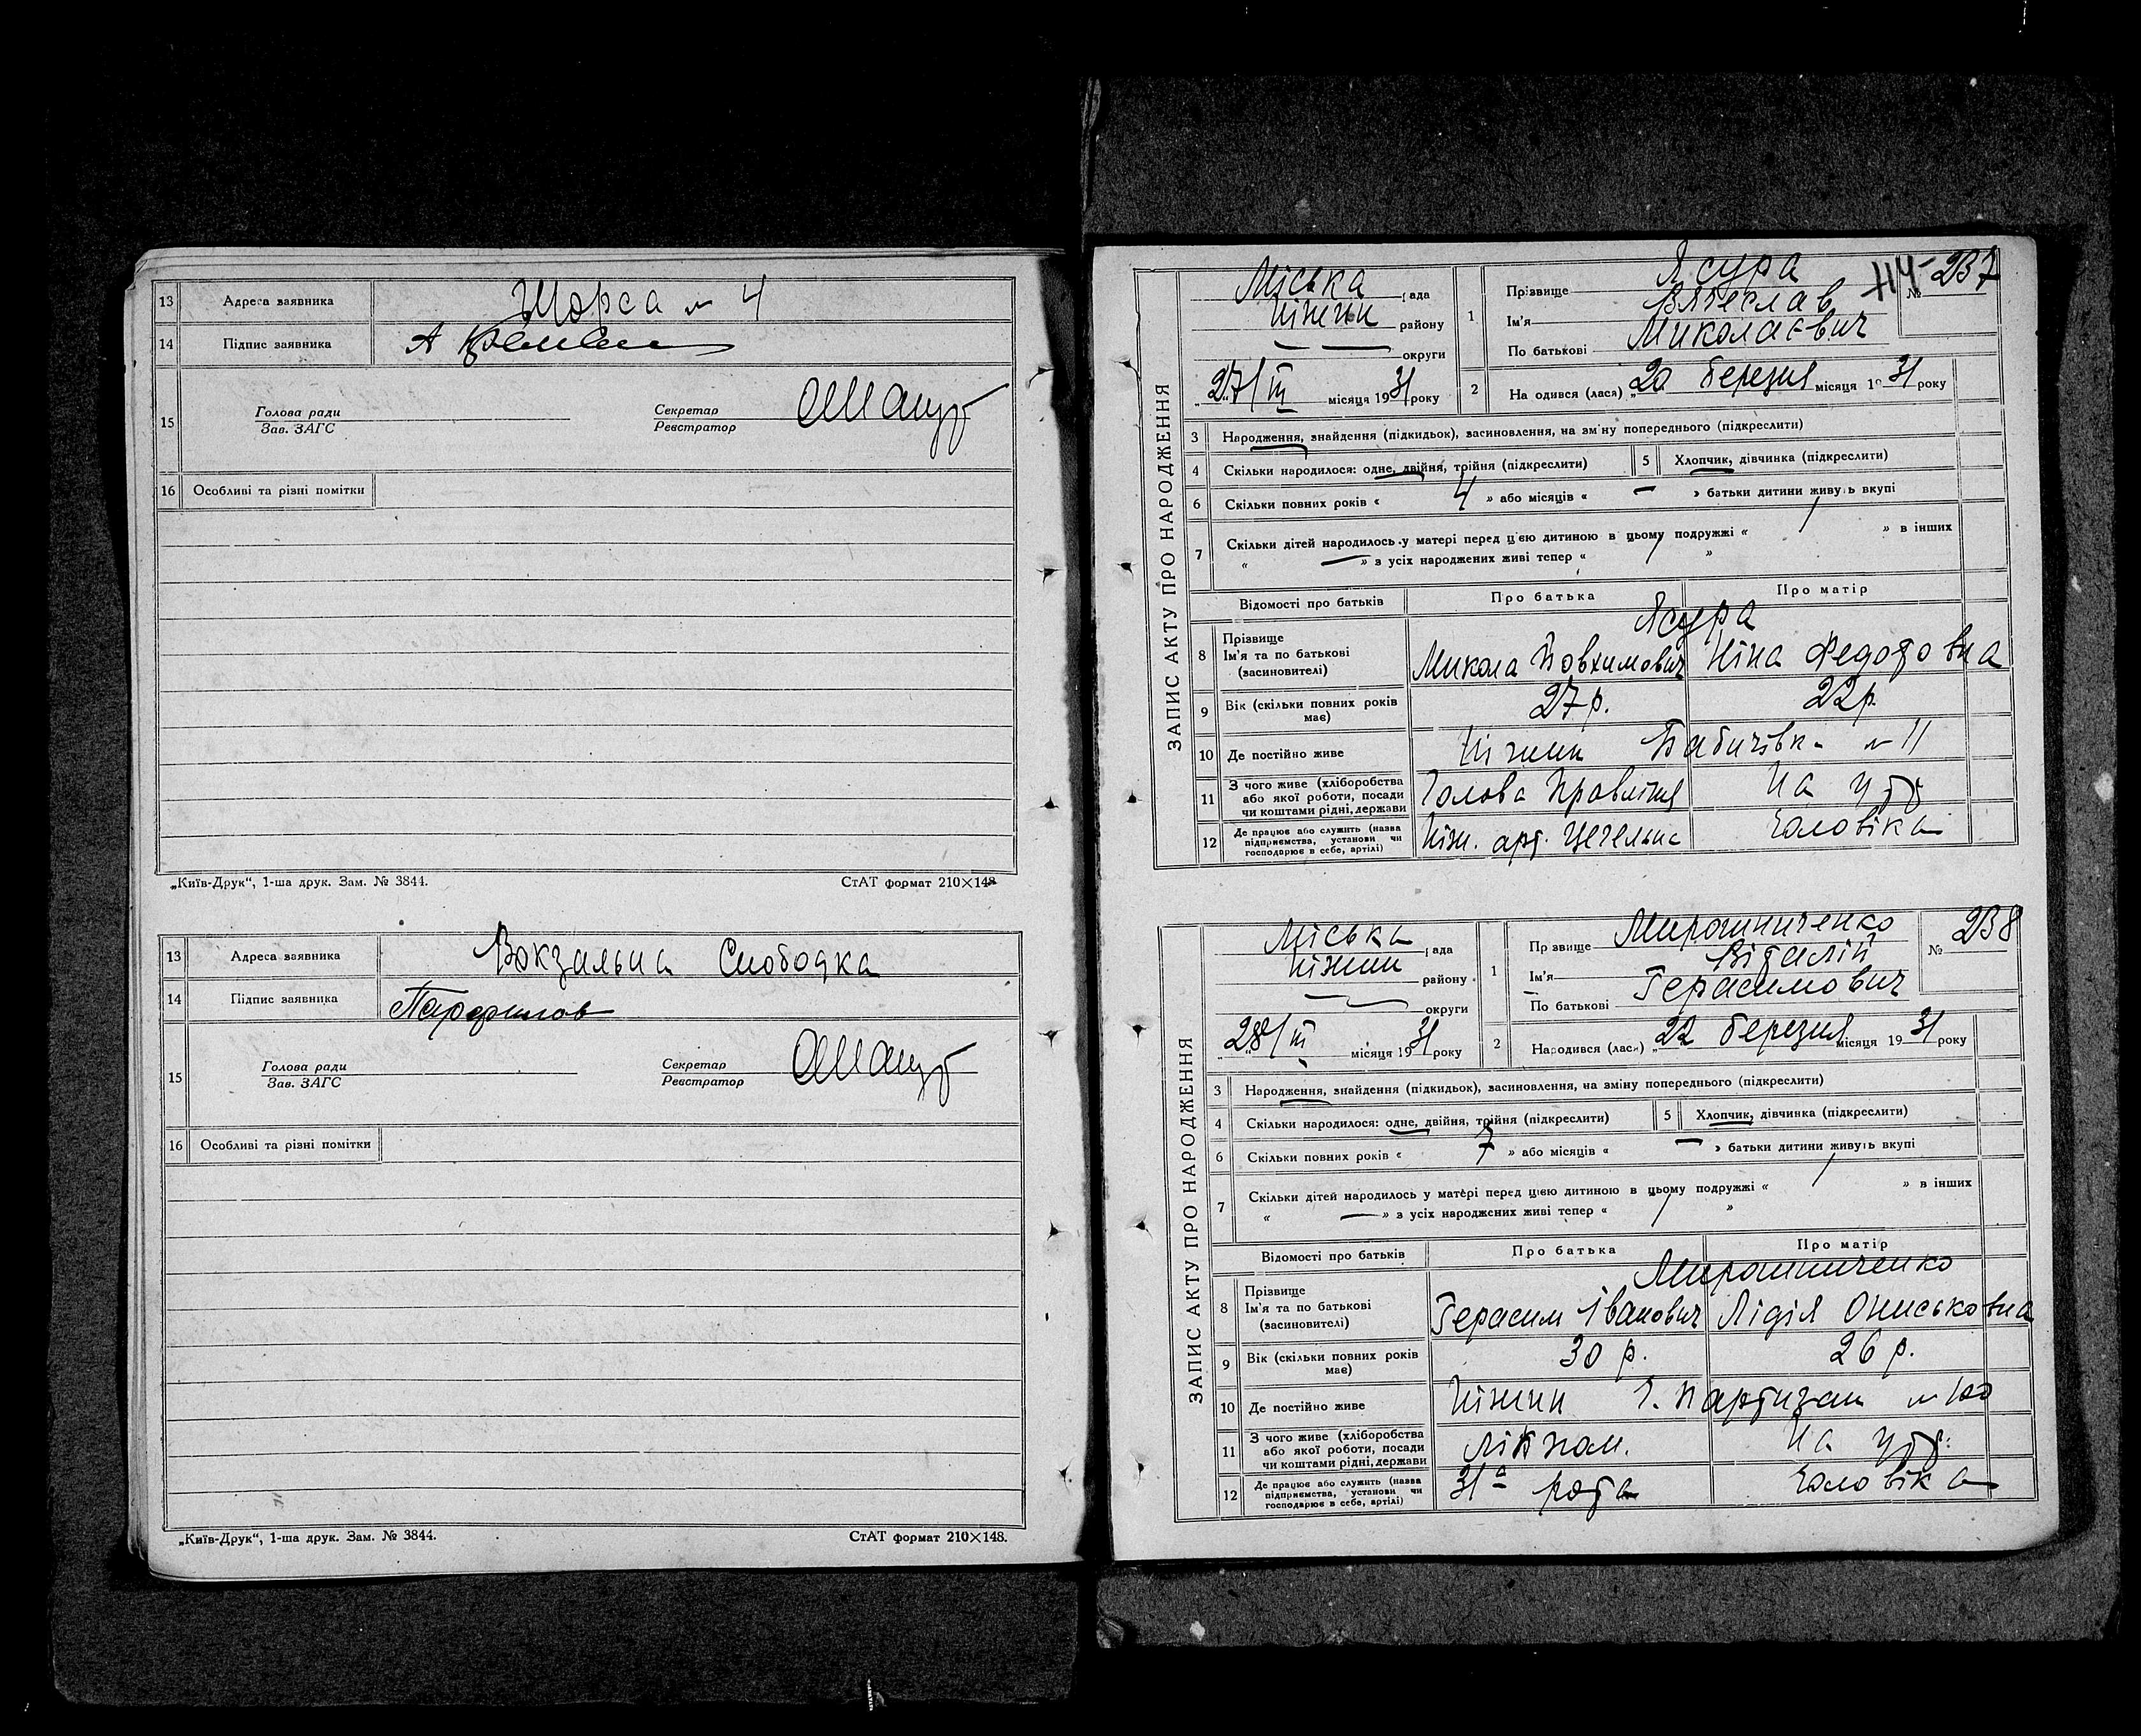 13 Адреса заявника Щорса № 4
14 Підпис заявника А
15 Голова ради
Зав. ЗАГС
Секретар
Реєстратор
16 Особливі та різні помітки
„Київ-Друк“, 1-ша друк. Зам. № 3844. СтАТ формат 210×148
13 Адреса заявника Вокзальна Слободка
14 Підпис заявника Парфилов
15 Голова ради
Зав. ЗАГС
Секретар
Реєстратор
16 Особливі та різні помітки
„Київ-Друк“, 1-ша друк. Зам. № 3844. СтАТ формат 210×148.
ЗАПИС АКТУ ПРО НАРОДЖЕННЯ
Міська рада
Ніжин району
— — округи
„27/III місяця 1931 року
1 Прізвище Ясура
Ім'я Вячеслав
По батькові Миколаєвич
№ 237
2 На одився (лася) „20 березня місяця 1931 року
3 Народження, знайдення (підкидьок), засиновлення, на зміну попереднього (підкреслити)
4 Скільки народилося: одне, двійня, трійня (підкреслити) 5 Хлопчик, дівчинка (підкреслити)
6 Скільки повних років « 4 » або місяців « — » батьки дитини живуть вкупі
7 Скільки дітей народилось у матері перед цією дитиною в цьому подружжі « 1 » в інших
« — » з усіх народжених живі тепер « 1 »
Відомості про батьків Про батька Про матір
8 Прізвище
Ім'я та по батькові
(засновителі)
Ясура
Микола Йовхимович Ніна Федотовна
9 Вік (скільки повних років має) 27 р. 22 р.
10 Де постійно живе Ніжин Бабичівка № 11
11 З чого живе (хліборобства
або якої роботи, посади
чи коштами рідні, держави
Голова Правління На утр
12 Де працює або служить (назва
підприємства, установи чи
господарює в себе, артілі)
Ніж. арт. Чоловіка
ЗАПИС АКТУ ПРО НАРОДЖЕННЯ
Міська рада
Ніжин району
— — округи
„28/III місяця 1931 року
1 Пр звище Мирошниченко
Ім'я Віталій
По батькові Герасимович
№ 238
2 Народився (лася) „22 березня місяця 1931 року
3 Народження, знайдення (підкидьок), засиновлення, на зміну попереднього (підкреслити)
4 Скільки народилося: одне, двійня, трійня (підкреслити) 5 Хлопчик, дівчинка (підкреслити)
6 Скільки повних років « 7 » або місяців « — » батьки дитини живуть вкупі
7 Скільки дітей народилось у матері перед цією дитиною в цьому подружжі « 1 » в інших
« — » з усіх народжених живі тепер « 1 »
Відомості про батьків Про батька Про матір
8 Прізвище
Ім'я та по батькові
(засиновителі)
Мирошниченко
Герасим Іванович Лідія Ониськовна
9 Вік (скільки повних років має) 30 р. 26 р.
10 Де постійно живе Ніжин Ч. Партизан № 100
11 З чого живе (хліборобства
або якої роботи, посади
чи коштами рідні, держави
Лікпом. На утр.
12 Де працює або служить (назва
підприємства, установи чи
господарює в себе, артілі)
31а рота Чоловіка